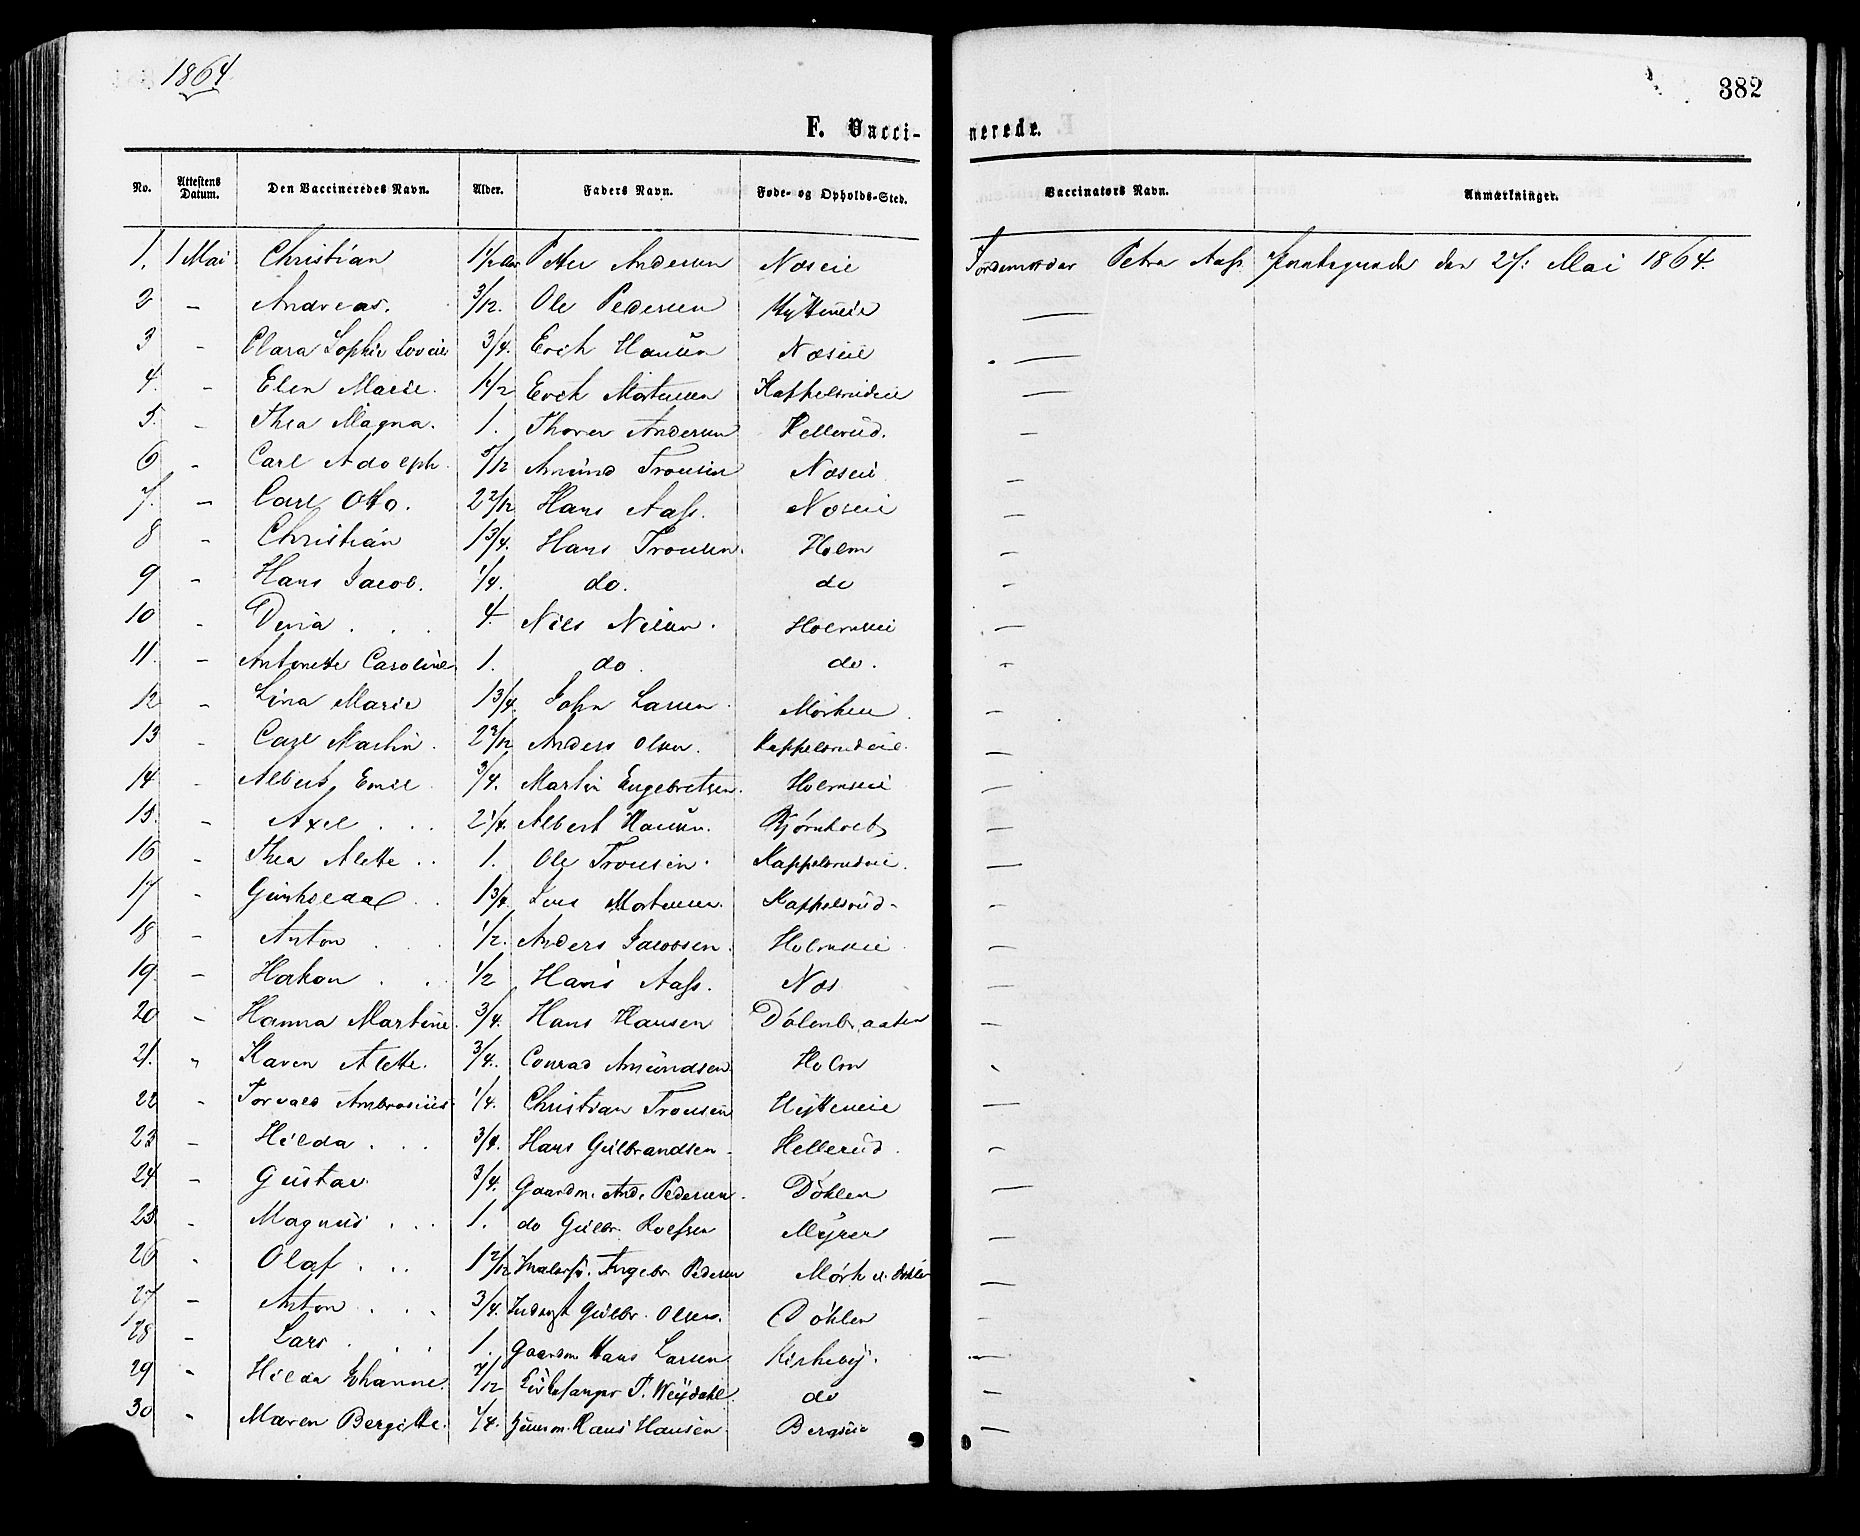 1864
382
F. Vacci-
nerede.
No. Attestens Datum. Den Vaccineredes Navn. Alder. Faders Navn. Føde- og Opholds-Sted. Vaccinators Navn. Anmærkninger.
1. 1 Mai Christian 1 1/2 Aar Peter Andersen Næseie Jordemoder Petra Aass den 27: Mai 1864.
2 - Andreas. 3/12. Ole Pedersen Hytteeie —
3 - Clara Sophie Lovise 3/4. Erik Hansen Næseie —
4. - Elen Marie. 1 1/2 Erik Mortensen Kappelsrudeie —
5. - Thea Magna. 1. Thorer Andersen Hellerud. —
6 - Carl Adolph. 5/12 Amund Tronsen Næseie —
7. - Carl Otto. 2 2/12 Hans Aass. Næseie —
8 - Christian 1 3/4. Hans Tronsen. Holm —
9 - Hans Jacob. 1/4. do. do —
10 - Dina . . . 4. Nils Nilsen. Holmseie —
11. - Antonette Caroline. 1. do. do. -
12 - Lina Marie 1 3/4. John Larsen. Mørkeie —
13 - Carl Martin. 2 2/12 Anders Olsen. Kappelsrudeie. —
14 - Albert Emil. 3/4. Martin Engebretsen. Holmseie —
15. - Axel . . . 2 1/4. Albert Hansen. Bjørnholt —
16 - Thea Alette . . 1. Ole Tronsen. Kappelsrudeie. —
17 - Gunhilda . . 1 3/4. Jens Mortensen. Kappelsrud- -
18 - Anton . . . 1/2. Anders Jacobsen. Holmseie —
19. - Hakon . . 1/2 Hans Aass. Næs —
20 - Hanna Martine. 3/4. Hans Hansen Dølenbraaten —
21. " Karen Alette. 3/4. Conrad Amundsen Holm -
22 - Torvald Ambrosius 1/4. Christian Tronsen Hytteeie —
23 - Hilda . . . 3/4. Hans Gulbrandsen - Hellerud. -
24 - Gustav. 3/4. Gaardm. And. Pedersen. Døhlen —
25. - Magnus . . . 1. do Gulbr. Rolfsen Myrer —
26 - Olaf . . . 1 2/12 Engebr. Pedersen Mørk —
27 - Anton . . . 3/4. Inderst Gulbr. Olsen. Døhlen —
28 - Lars . . . 1. Gaardm. Hans Larsen Kirkeby. —
29 - Hilda Johanne. 7/12 Kirkesanger P. Weydahl. do —
30 - Maren Bergitte. 1/4. Huusm. Hans Hansen. Bergseie —